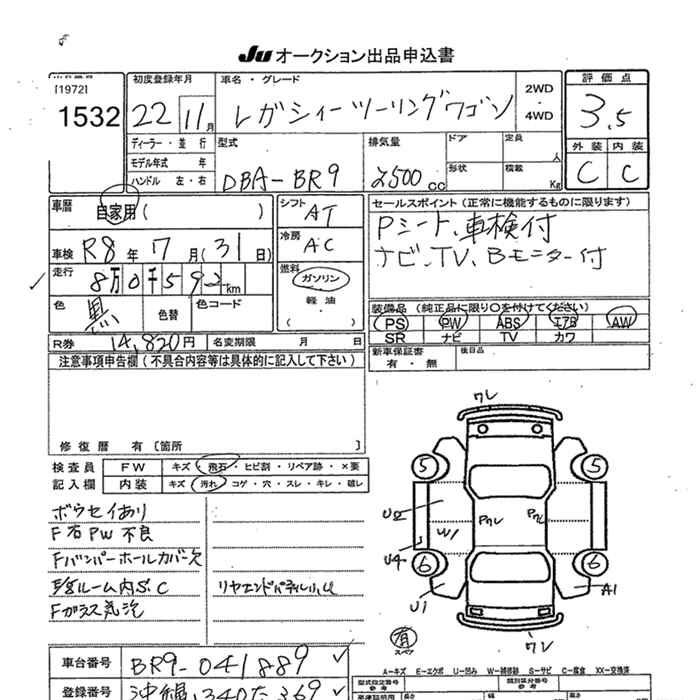 Ju オークション出品申込書
[1972]
1532
初度登録年月
22 11月
車名・グレード
レガシィーツーリングワゴン
2WD
・
4WD
評価点
3.5
外装 内装
C C
ディーラー・並行
モデル年式 年
ハンドル 左・右
型式
DBA-BR9
排気量
2500 cc
ドア
定員
人
形状
積載
Kg
車歴
自家用( )
車検 R8年7月(31日)
走行 8万0千592km
色 黒
色替
色コード
シフト
AT
冷房
AC
燃料
ガソリン
軽油
( )
セールスポイント(正常に機能するものに限ります)
Pシート、車検付
ナビ、TV、Bモニター付
装備品(純正品に限り○を付けてください)
PS PW ABS エアB AW
SR ナビ TV カワ
R券 14,820円
名変期限 月 日
新車保証書
有・無
後日品
注意事項申告欄(不具合内容等は具体的に記入して下さい)
修復歴 有[箇所 ]
検査員 FW キズ・飛石・ヒビ割・リペア跡・×要
記入欄 内装 キズ・汚れ・コゲ・穴・スレ・キレ・破レ
ボウセイあり
F右PW不良
Fバンパーホールカバー欠
ルーム内S.C
Fガラス気泡
ワレ
5 5
U2
Pワレ Pワレ
W1
U4
6 6
U1
A1
有
スペア
ワレ
A-キズ E-エクボ U-凹み W-補修跡 S-サビ C-腐食 XX-交換済
車台番号 BR9-041889
登録番号 沖縄 340 た 369
型式指定番号
参考
類別区分番号
参考
長さ
幅
高さ